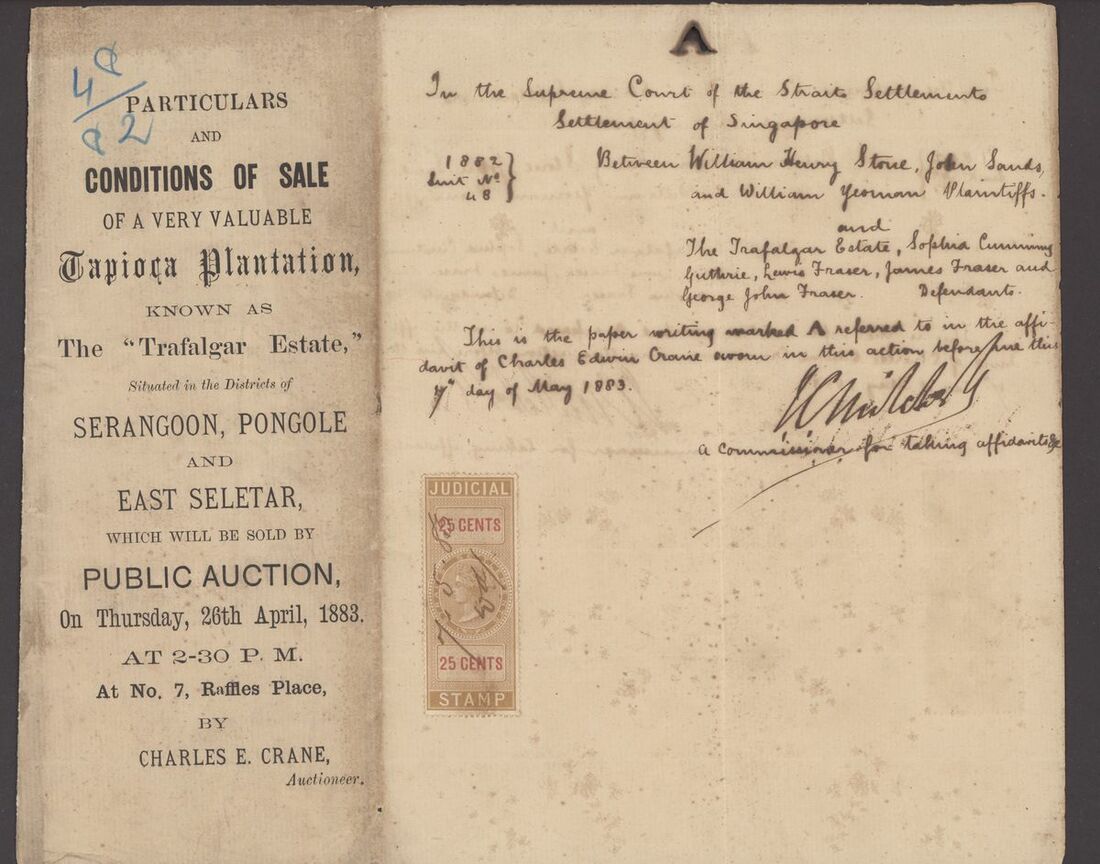 PARTICULARS
AND
CONDITIONS OF SALE
OF A VERY VALUABLE
Tapioca Plantation,
KNOWN AS
The "Trafalgar Estate,"
Situated in the Districts of
SERANGOON, PONGOLE
AND
EAST SELETAR,
WHICH WILL BE SOLD BY
PUBLIC AUCTION,
On Thursday, 26th April, 1883.
AT 2-30 P. M.
At No. 7, Raffles Place,
BY
CHARLES E. CRANE,
Auctioneer.
A
In the Supreme Court of the Straits Settlements
Settlement of Singapore
1882
Suit No
48
Between William Henry Stone, John Sands,
and William Yeoman Plaintiffs.
and
The Trafalgar Estate, Sophia Cumming
Guthrie, Lewis Fraser, James Fraser and
George John Fraser. Defendants.
This is the paper writing marked A referred to in the affi-
davit of Charles Edwin Crane sworn in this action before me this
day of May 1883.
A Commissioner for taking affidavits &c
JUDICIAL
25 CENTS
25 CENTS
STAMP